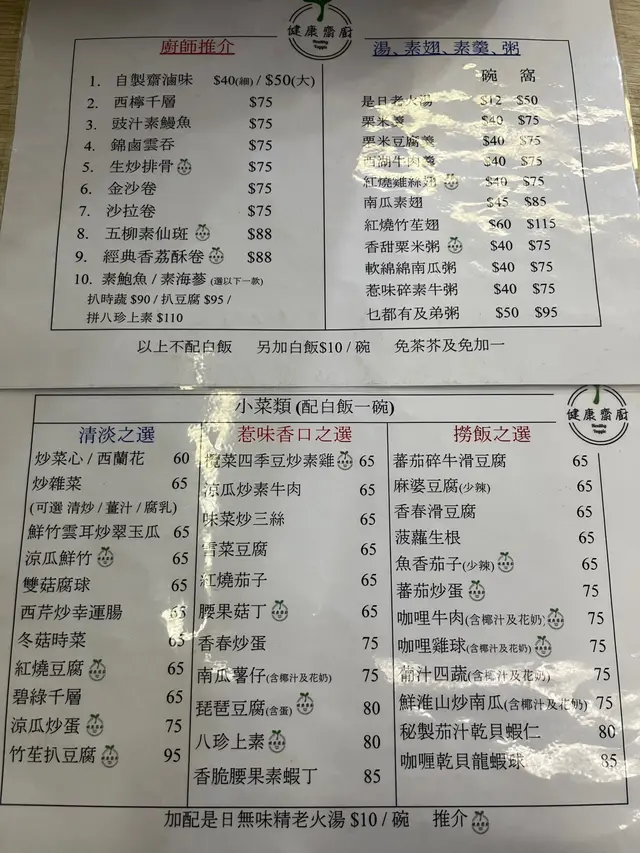 健康齋廚
Healthy Veggie
廚師推介
1. 自製齋滷味 $40(細) / $50(大)
2. 西檸千層 $75
3. 豉汁素鰻魚 $75
4. 錦鹵雲吞 $75
5. 生炒排骨 $75
6. 金沙卷 $75
7. 沙拉卷 $75
8. 五柳素仙斑 $88
9. 經典香荔酥卷 $88
10. 素鮑魚 / 素海蔘 (選以下一款)
扒時蔬 $90 / 扒豆腐 $95 /
拼八珍上素 $110
湯、素翅、素羹、粥
碗 窩
是日老火湯 $12 $50
栗米羹 $40 $75
栗米豆腐羹 $40 $75
西湖牛肉羹 $40 $75
紅燒雞絲翅 $40 $75
南瓜素翅 $45 $85
紅燒竹笙翅 $60 $115
香甜栗米粥 $40 $75
軟綿綿南瓜粥 $40 $75
惹味碎素牛粥 $40 $75
乜都有及弟粥 $50 $95
以上不配白飯 另加白飯$10 / 碗 免茶芥及免加一
小菜類 (配白飯一碗)
健康齋廚
Healthy Veggie
清淡之選
炒菜心 / 西蘭花 60
炒雜菜 65
(可選 清炒 / 薑汁 / 腐乳)
鮮竹雲耳炒翠玉瓜 65
涼瓜鮮竹 65
雙菇腐球 65
西芹炒幸運腸 65
冬菇時菜 65
紅燒豆腐 65
碧綠千層 65
涼瓜炒蛋 75
竹笙扒豆腐 95
惹味香口之選
欖菜四季豆炒素雞 65
涼瓜炒素牛肉 65
味菜炒三絲 65
雪菜豆腐 65
紅燒茄子 65
腰果菇丁 65
香春炒蛋 75
南瓜薯仔(含椰汁及花奶) 75
琵琶豆腐(含蛋) 80
八珍上素 80
香脆腰果素蝦丁 85
撈飯之選
蕃茄碎牛滑豆腐 65
麻婆豆腐(少辣) 65
香春滑豆腐 65
菠蘿生根 65
魚香茄子(少辣) 65
蕃茄炒蛋 75
咖哩牛肉(含椰汁及花奶) 75
咖哩雞球(含椰汁及花奶) 75
葡汁四蔬(含椰汁及花奶) 75
鮮淮山炒南瓜(含椰汁及花奶) 75
秘製茄汁乾貝蝦仁 80
咖喱乾貝龍蝦球 85
加配是日無味精老火湯 $10 / 碗 推介